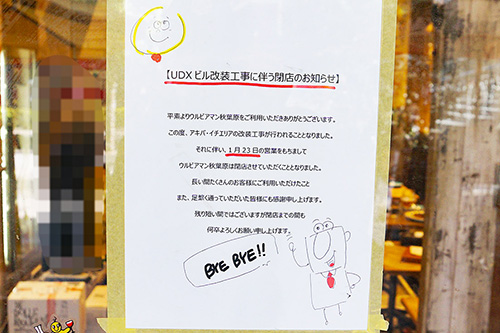 【UDXビル改装工事に伴う閉店のお知らせ】
平素よりウルビアマン秋葉原をご利用いただきありがとうございます。
この度、アキバ・イチエリアの改装工事が行われることとなりました。
それに伴い、1月23日の営業をもちまして
ウルビアマン秋葉原は閉店させていただくこととなりました。
長い間たくさんのお客様にご利用いただけたこと
また、足繁く通っていただいた皆様にも感謝申し上げます。
残り短い間ではございますが閉店までの間も
何卒よろしくお願い申し上げます。
BYE BYE!!